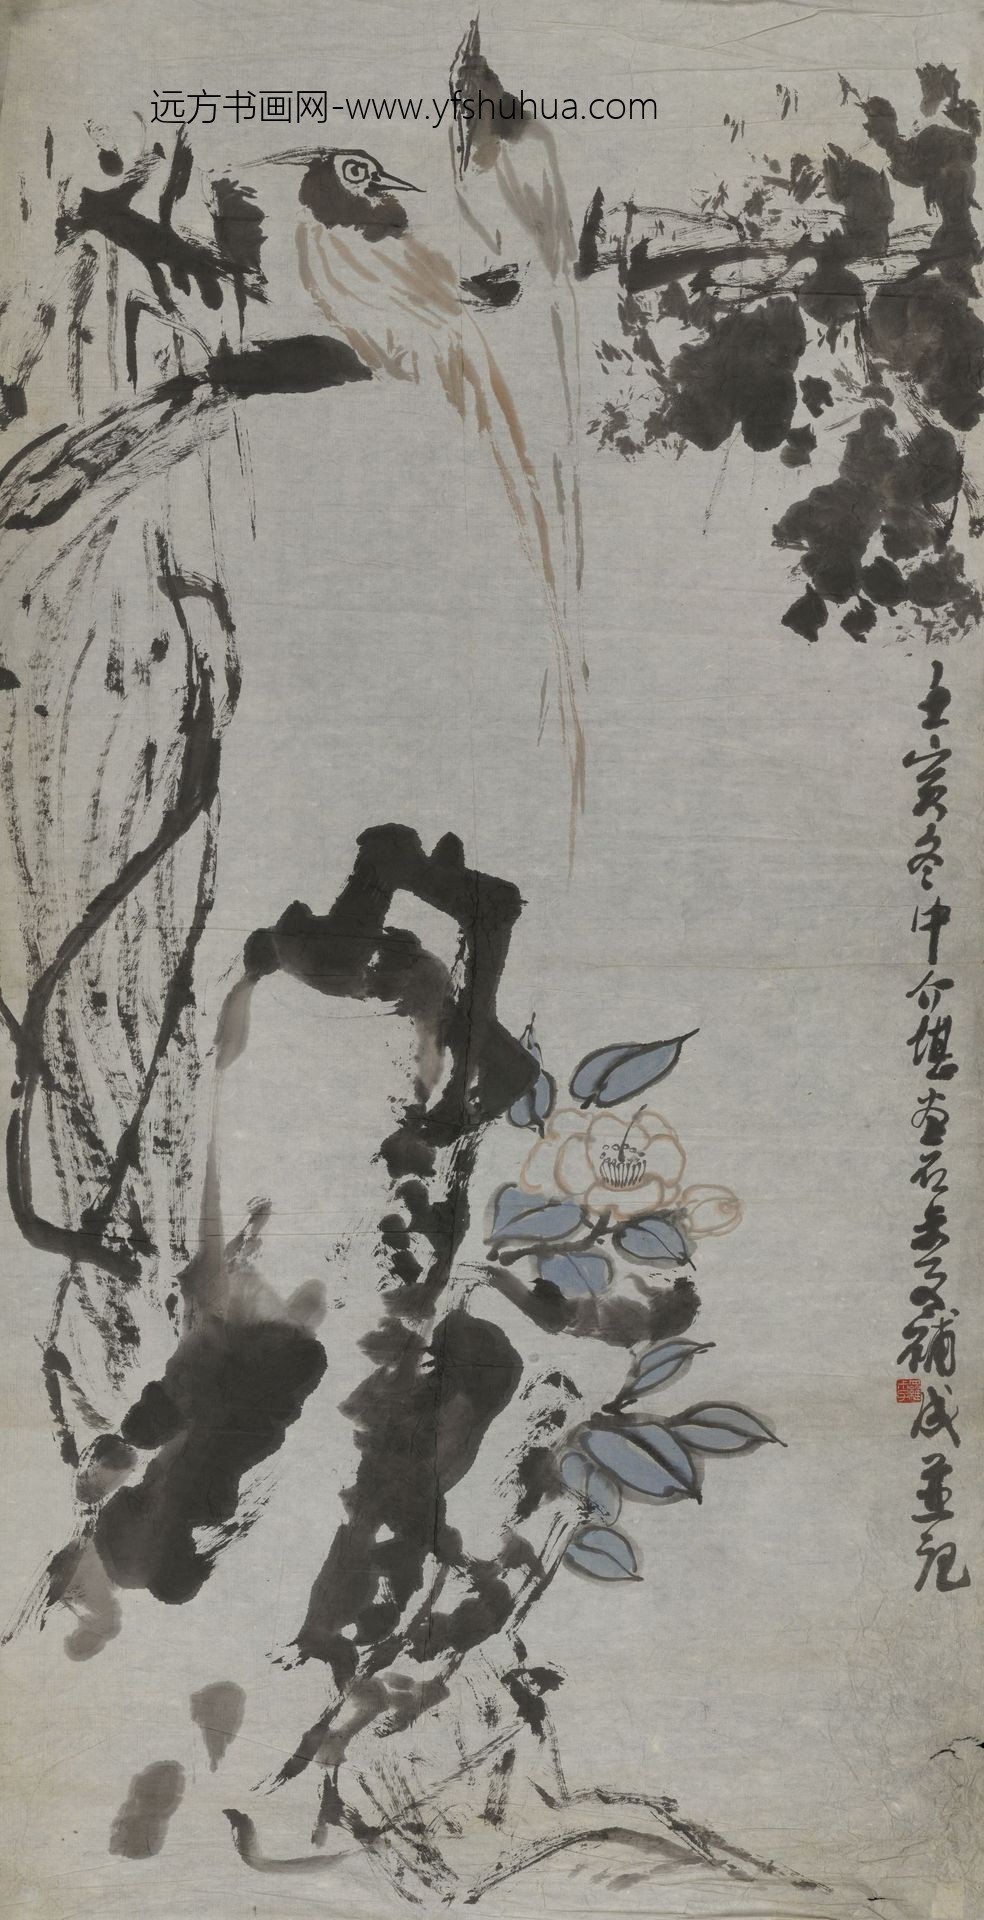 远方书画网-www.yfshuhua.com
壬寅冬中介堪画石步文補成並记